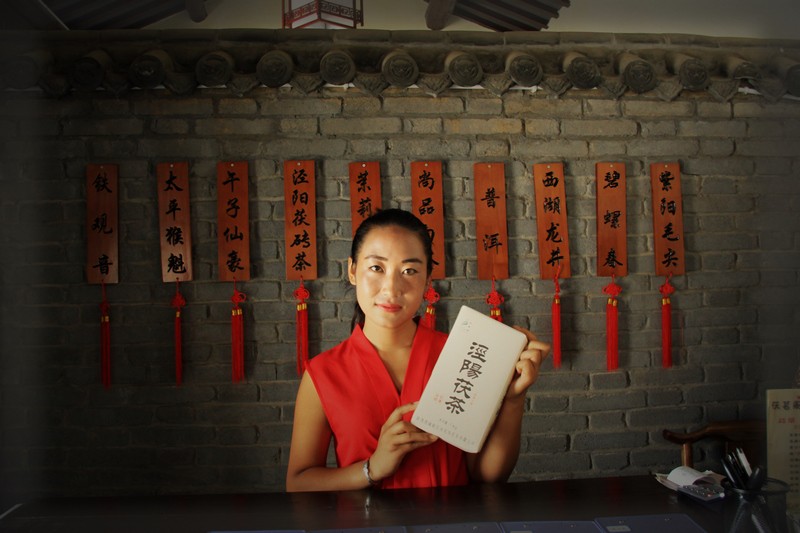 铁观音
太平猴魁
午子仙毫
泾阳茯砖茶
茉莉
尚品
普洱
西湖龙井
碧螺春
紫阳毛尖
涇陽茯茶